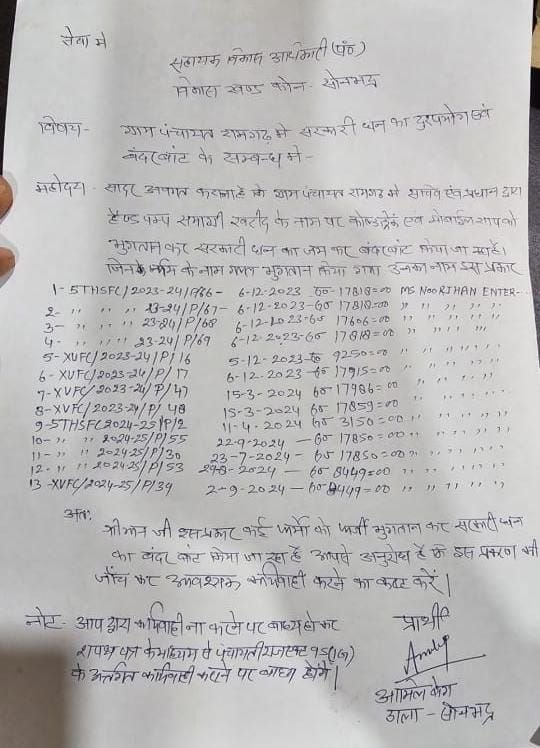 सेवा में
सहायक विकास अधिकारी (पं०)
विकास खण्ड कोन - सोनभद्र
विषय - ग्राम पंचायत रामगढ़ में सरकारी धन का दुरुपयोग एवं
बंदरबांट के सम्बन्ध में -
महोदय - सादर अवगत कराना है कि ग्राम पंचायत रामगढ़ में सचिव एवं प्रधान द्वारा
हैण्ड पम्प सामाग्री खरीद के नाम पर कोल्डड्रिंक एवं मोबाईल शाप को
भुगतान कर सरकारी धन का जम कर बंदरबांट किया जा रहा है।
जिनके फर्म के नाम गलत भुगतान किया गया उनका नाम इस प्रकार
1- 5THSFC/2023-24/P/66 - 6-12-2023 रू० 17818=00 MS NOORJHAN ENTER-
2- " " " 23-24/P/67- 6-12-2023-रू० 17818=00 " " " " "
3- " " " 23-24/P/68 6-12-2023-रू० 17606=00 " " " " "
4- " " 23-24/P/69 6-12-2023-रू० 17818=00 " " " " "
5- XVFC/2023-24/P/16 5-12-2023-रू० 9250=00 " " " " "
6- XVFC/2023-24/P/17 6-12-2023-रू० 17915=00 " " " " "
7- XVFC/2023-24/P/47 15-3-2024 रू० 17986=00 " " " " "
8- XVFC/2023-24/P/48 15-3-2024 रू० 17859=00 " " " " "
9- 5THSFC2024-25/P/2 11-4-2024 रू० 3150=00 " " " " "
10- " " 2024-25/P/55 22-9-2024 - रू० 17850=00 " " " " "
11- " " 2024-25/P/30 23-7-2024 - रू० 17850=00 " " " " "
12- " " 2024-25/P/53 -2024 - रू० 8449=00 " " " " "
13- XVFC/2024-25/P/39 2-9-2024 - रू० 8449=00 " " " " "
अतः
श्रीमान जी इस प्रकार कई फर्मों को फर्जी भुगतान कर सरकारी धन
का बंदर बांट किया जा रहा है आपसे अनुरोध है कि इस प्रकरण की
जाँच कर आवश्यक कार्यवाही करने का कष्ट करें।
नोट - आप द्वारा कार्यवाही ना करने पर बाध्य होकर
शपथ पत्र के माध्यम से पंचायतीराज एक्ट 95(1G)
के अर्न्तगत कार्यवाही कराने पर बाध्य होंगे।
प्रार्थी
डाला - सोनभद्र